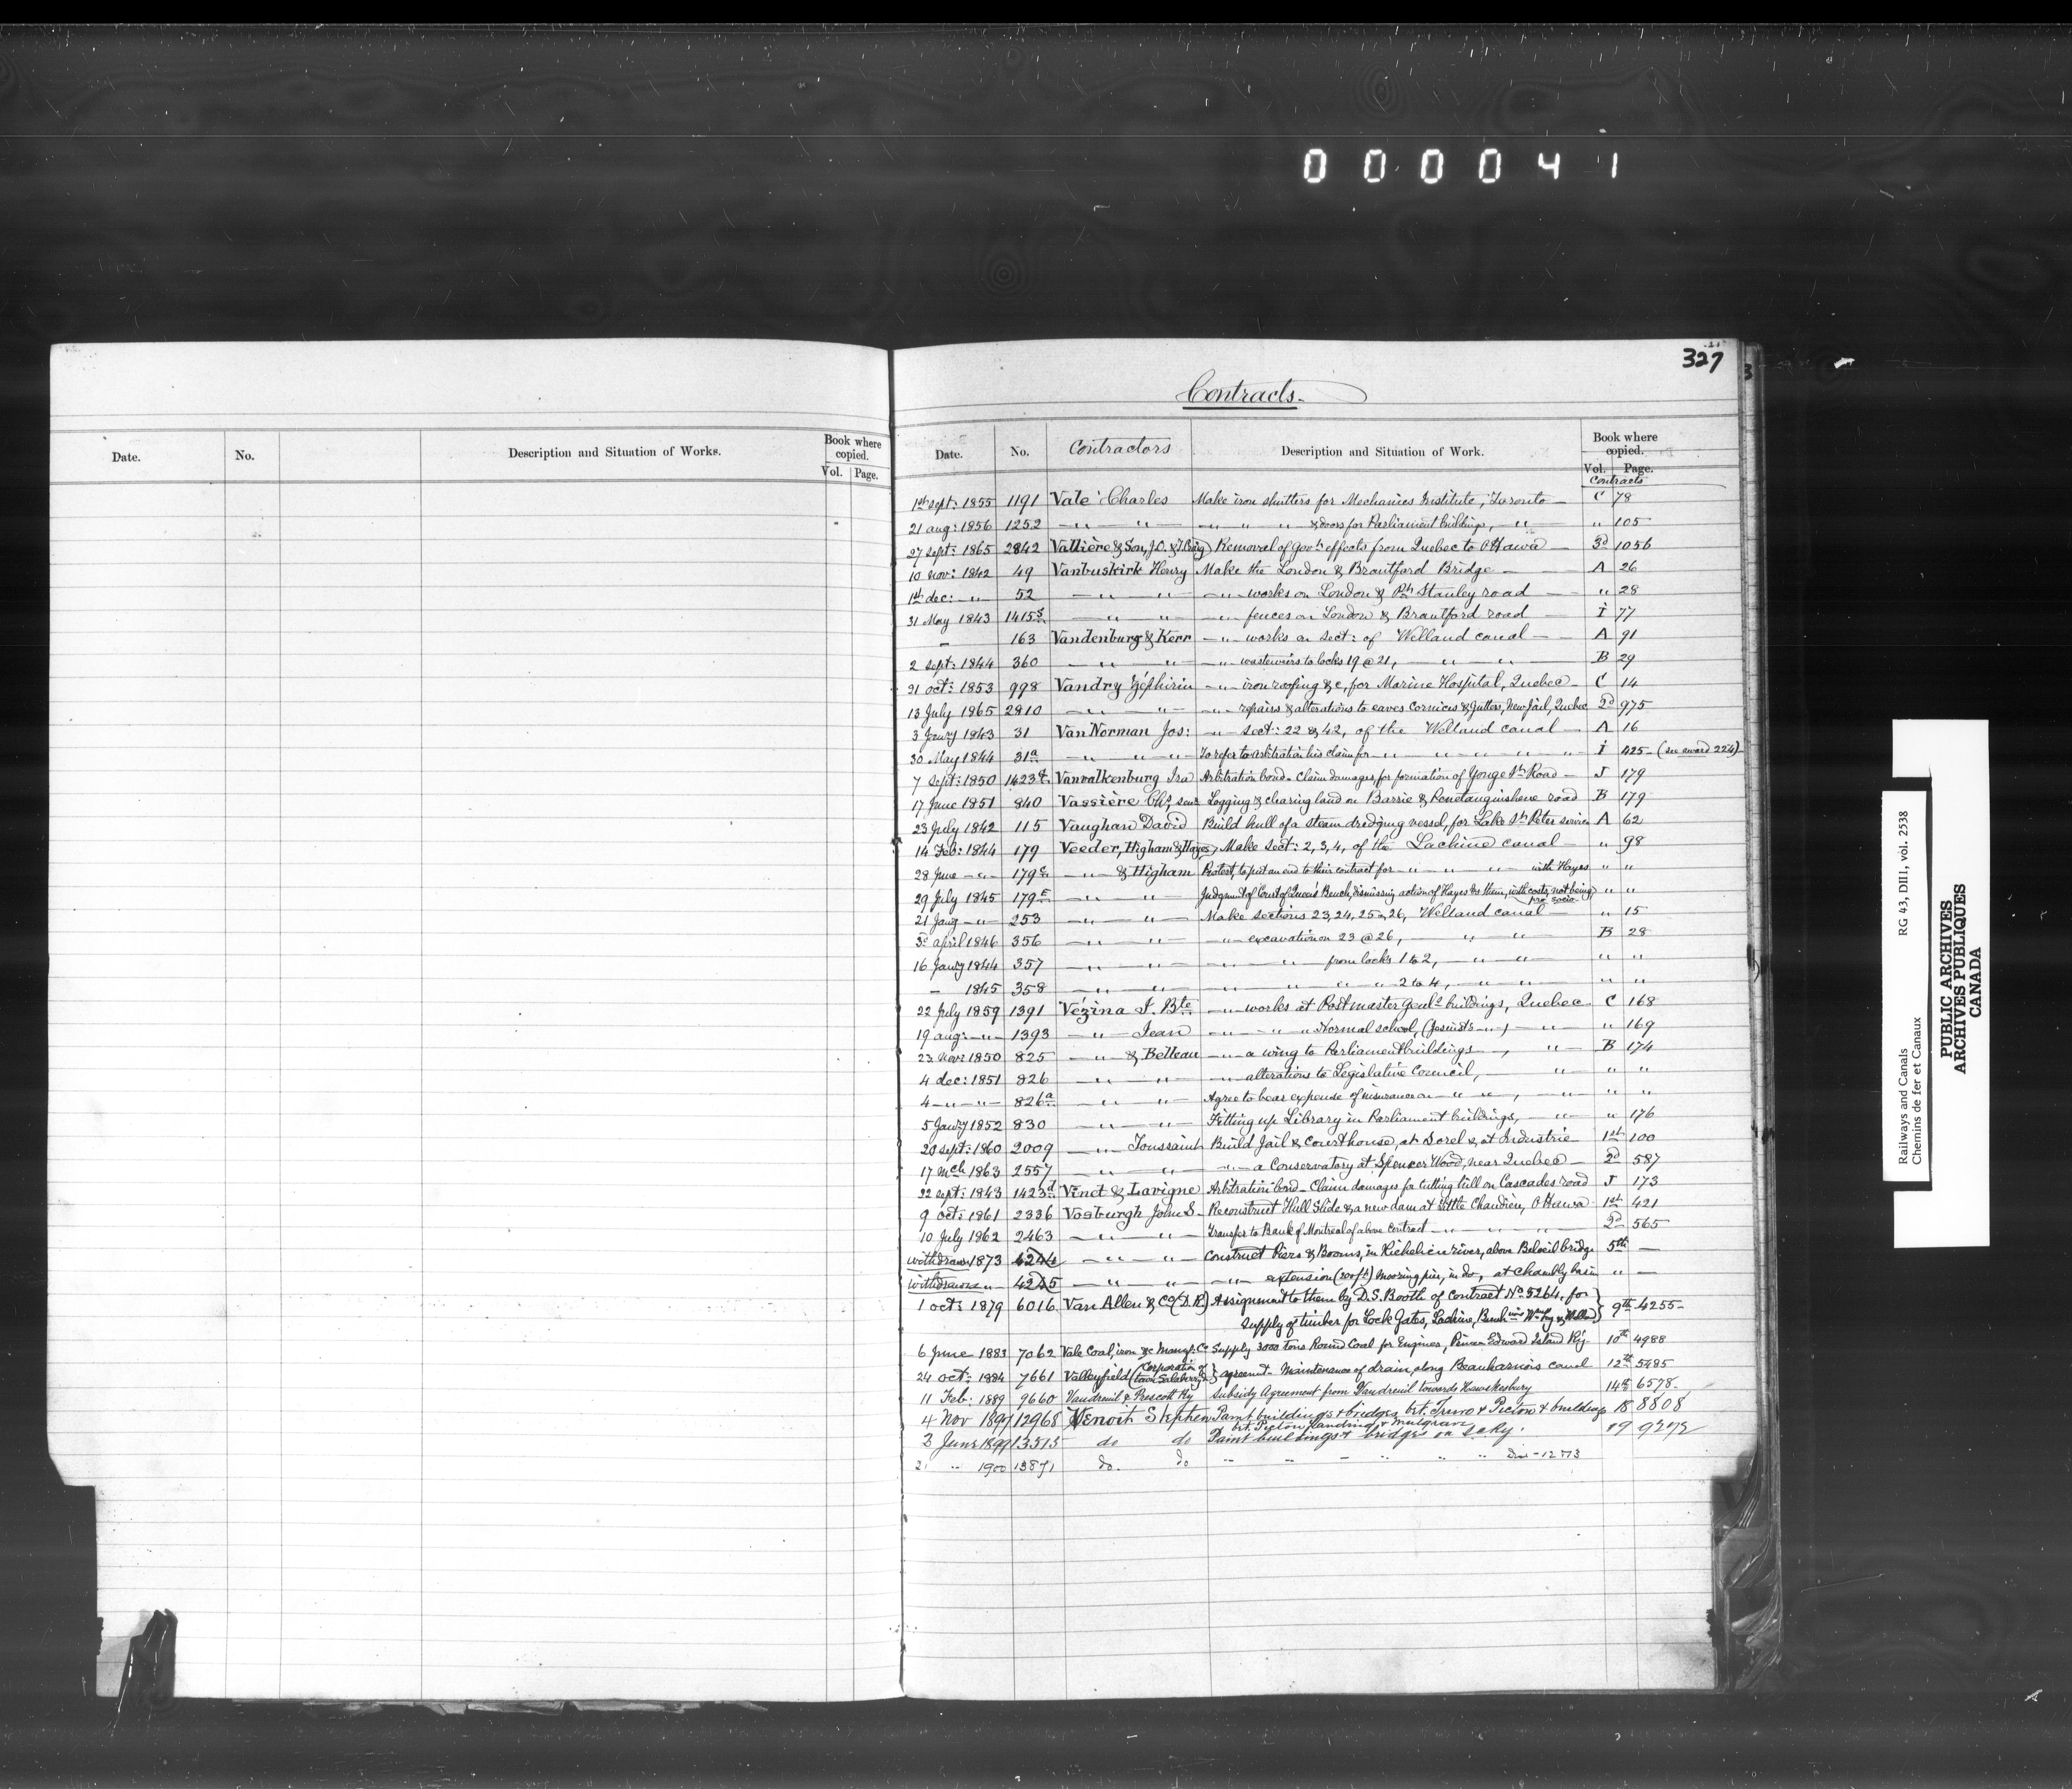 000041
327
Contracts
Date. No. Description and Situation of Works. Book where copied. Vol. Page.
Date. No. Contractors Description and Situation of Work. Book where copied. Vol. Page.
Contracts
1st sept: 1855 1191 Vale Charles Make iron shutters for Mechanics Institute, Toronto — C 78
21 aug: 1856 1252 —"— " —"— " " & doors for Parliament buildings, —"— " 105
27 sept: 1865 2842 Vallière & Son, J.O. & J. Craig Removal of Govt effects from Quebec to Ottawa — 3d 1056
10 nov: 1842 49 Vanbuskirk Henry Make the London & Brantford Bridge — A 26
1st dec: —"— 52 —"— " —"— works on London & Pt Stanley road — " 28
31 May 1843 1415 —"— " —"— fences on London & Brantford road — I 77
— 163 Vandenburg & Kerr —"— works on sect: of Welland canal — A 91
2 sept: 1844 360 —"— " —"— wasteweirs to locks 19 @ 21, —"— " B 29
21 oct: 1853 998 Vandry Zéphirin —"— iron roofing &c, for Marine Hospital, Quebec — C 14
13 July 1865 2810 —"— " —"— repairs & alterations to eaves cornices & gutters, New Jail, Quebec 2d 975
3 Jany 1843 31 Van Norman Jos: —"— sect: 22 & 42, of the Welland canal — A 16
30 May 1844 31a —"— " To refer to arbitration his claim for —"— " " " " I 425 — (see award 224)
7 sept: 1850 1423 Vanvalkenburg Ira Arbitration bond — Claim damages, for formation of Yonge St Road — J 179
17 June 1851 840 Vassière Chs, senr Logging & clearing land on Barrie & Penetanguishene road B 179
23 July 1842 115 Vaughan David Build hull of a steam dredging vessel, for Lake St Peter service A 62
14 Feb: 1844 179 Veeder, Higham & Hayes Make Sect: 2, 3, 4, of the Lachine canal — " 98
28 June —"— 179c —"— & Higham Protest, to put an end to their contract for —"— " " with Hayes " "
29 July 1845 179E —"— " Judgment of Court of Queen's Bench, dismissing action of Hayes & them, with costs, not being pro socio " "
21 Jany —"— 253 —"— " Make sections 23, 24, 25 & 26, Welland canal — " 15
3d april 1846 356 —"— " —"— excavation on 23 @ 26, —"— " B 28
16 Jany 1844 357 —"— " —"— " from locks 1 to 2, —"— " " "
— 1845 358 —"— " —"— " " " 2 to 4, —"— " " "
22 July 1859 1391 Vézina J. Bte —"— works at Post master Genl's buildings, Quebec C 168
19 aug: —"— 1393 —"— Jean —"— " " Normal school, (Jesuits —"—) —"— " 169
23 Nov: 1850 825 —"— & Belleau —"— a wing to Parliament buildings —, " B 174
4 dec: 1851 826 —"— " —"— alterations to Legislative Council, —"— " "
4 —"— —"— 826a —"— " Agree to bear expense of insurance on —"— ", —"— " "
5 Jany 1852 830 —"— " Fitting up Library in Parliament buildings, —"— " 176
20 sept: 1860 2009 —"— Toussaint Build Jail & Courthouse, at Sorel & at Industrie 1st 100
17 Mch 1863 2557 —"— " —"— a Conservatory at Spencer Wood, near Quebec — 2d 587
22 sept: 1843 1423d Vinet & Lavigne Arbitration bond — Claim damages for cutting hill on Cascades road J 173
9 oct: 1861 2336 Vosburgh John S. Reconstruct Hull Slide & a new dam at Little Chaudière, Ottawa 1st 421
10 July 1862 2463 —"— " Transfer to Bank of Montreal of above contract —"— " " 2d 565
withdrawn 1873 4244 —"— " Construct Piers & Booms, in Richelieu river, above Beloeil bridge 5th —
withdrawn " 4245 —"— " —"— extension (200 ft) Mooring pier, in do, at Chambly basin " —
1 oct: 1879 6016 Van Allen & Co (D.R.) Assignment to them by D.S. Booth of Contract No 5264, for
supply of timber for Lock Gates, Lachine, 9th 4255
6 June 1883 7062 Vale Coal, iron &c Manuf. Co Supply 3000 Tons Round Coal for Engines, Prince Edward Island Ry. 10th 4988
24 oct: 1884 7661 Valleyfield (Corporation of town Salaberry) agreemt. Maintenance of drain, along Beauharnois canal 12th 5485
11 Feb: 1889 9660 Vaudreuil & Prescott Ry Subsidy Agreement from Vaudreuil towards Hawkesbury 14th 6578
4 Nov 1897 12968 Venoit Stephen Paint buildings & bridges bet. Truro & Pictou & buildings 18 8808
bet. Pictou Landing & Mulgrave
3 June 1899 13515 do do Paint buildings & bridges on 19 9272
21 " 1900 13871 do. do " " " " " "
RG 43, DIII1, vol. 2538
Railways and Canals
Chemins de fer et Canaux
PUBLIC ARCHIVES
ARCHIVES PUBLIQUES
CANADA